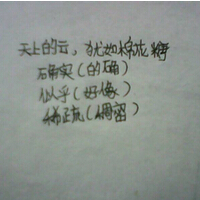 天上的云，犹如棉花糖
确实（的确）
似乎（好像）
稀疏（稠密）